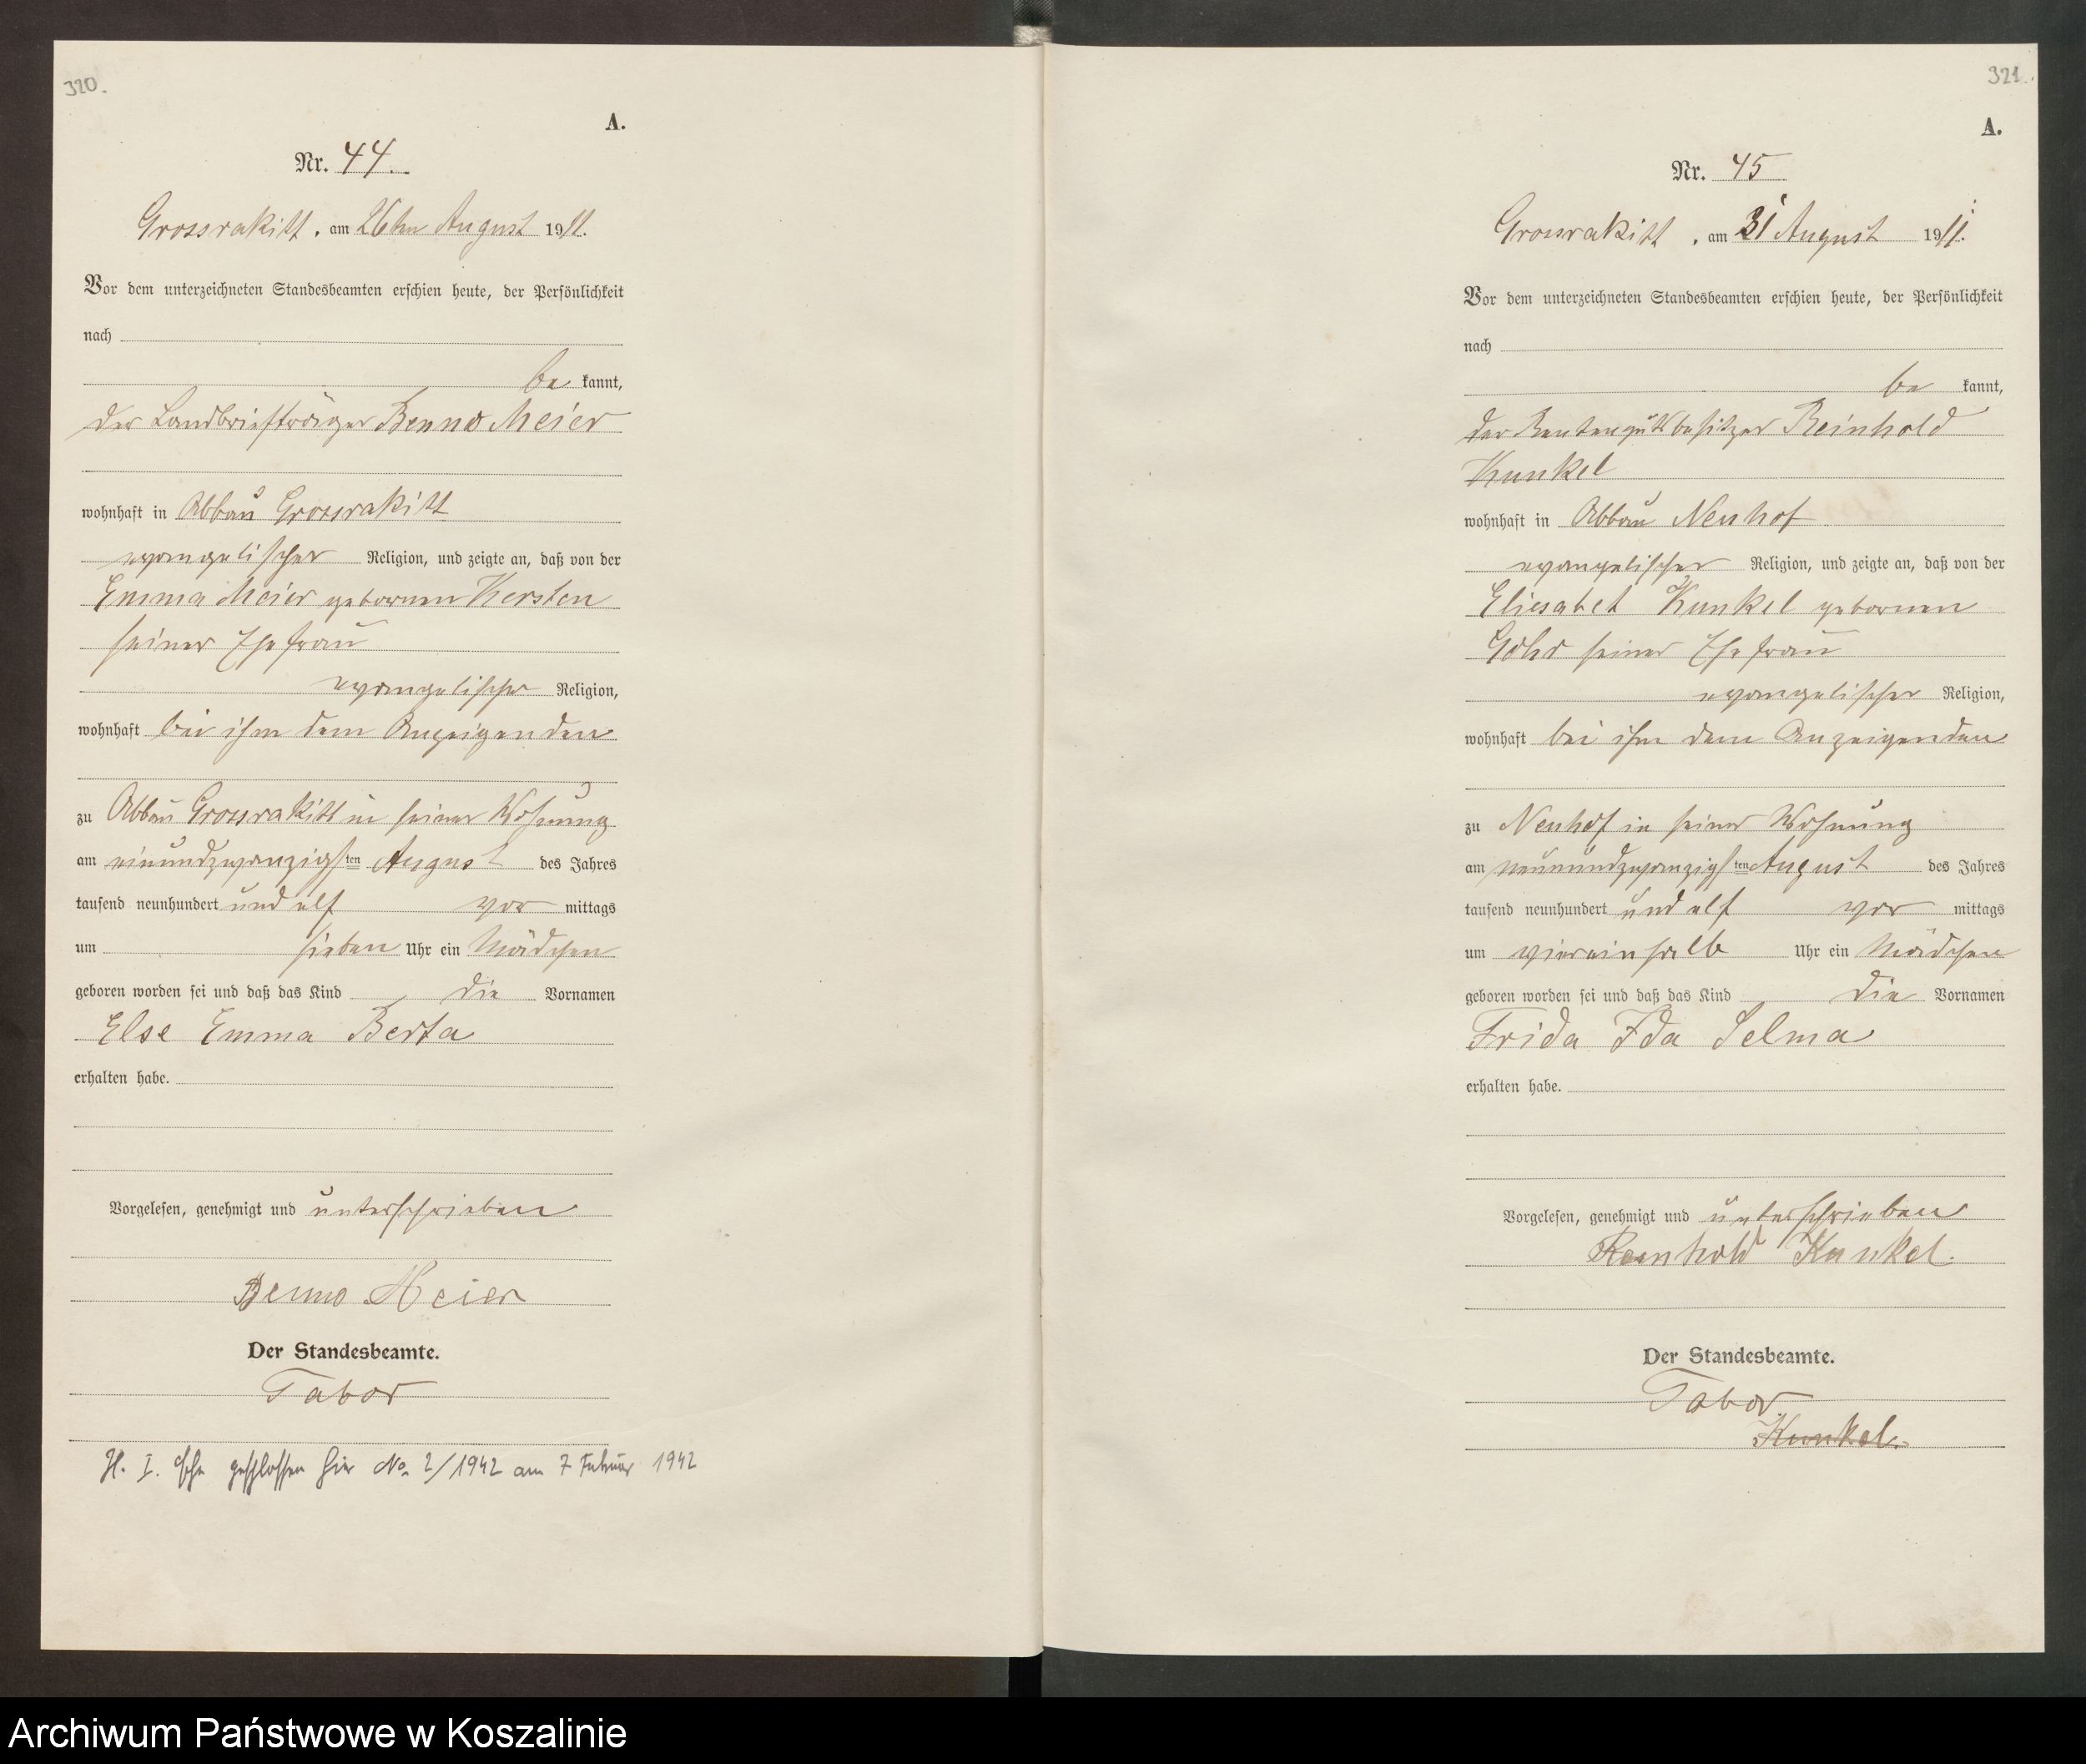 320.
A.
Nr. 44.
Grossrakitt, am 26ten August 1911.
Vor dem unterzeichneten Standesbeamten erschien heute, der Persönlichkeit
nach
be kannt,
der Landbriefträger Benno Meier
wohnhaft in Abbau Grossrakitt
evangelischer Religion, und zeigte an, daß von der
Emma Meier gebornen Kersten
seiner Ehefrau
evangelischer Religion,
wohnhaft bei ihm dem Anzeigenden
zu Abbau Grossrakitt in seiner Wohnung
am einundzwanzigsten August des Jahres
tausend neunhundert und elf vor mittags
um sieben Uhr ein Mädchen
geboren worden sei und daß das Kind die Vornamen
Else Emma Berta
erhalten habe.
Vorgelesen, genehmigt und unterschrieben
Benno Meier
Der Standesbeamte.
Tabor
H. I. Ehe geschlossen hier No 2/1942 am 7 Februar 1942
321.
A.
Nr. 45
Grossrakitt, am 31 August 1911.
Vor dem unterzeichneten Standesbeamten erschien heute, der Persönlichkeit
nach
be kannt,
der Rentengutsbesitzer Reinhold
Kunkel
wohnhaft in Abbau Neuhof
evangelischer Religion, und zeigte an, daß von der
Eliesabet Kunkel gebornen
Gohr seiner Ehefrau
evangelischer Religion,
wohnhaft bei ihm dem Anzeigenden
zu Neuhof in seiner Wohnung
am neunundzwanzigsten August des Jahres
tausend neunhundert und elf vor mittags
um viereinhalb Uhr ein Mädchen
geboren worden sei und daß das Kind die Vornamen
Frida Ida Selma
erhalten habe.
Vorgelesen, genehmigt und unterschrieben
Reinhold Kunkel.
Der Standesbeamte.
Tabor
Kunkel.
Archiwum Państwowe w Koszalinie